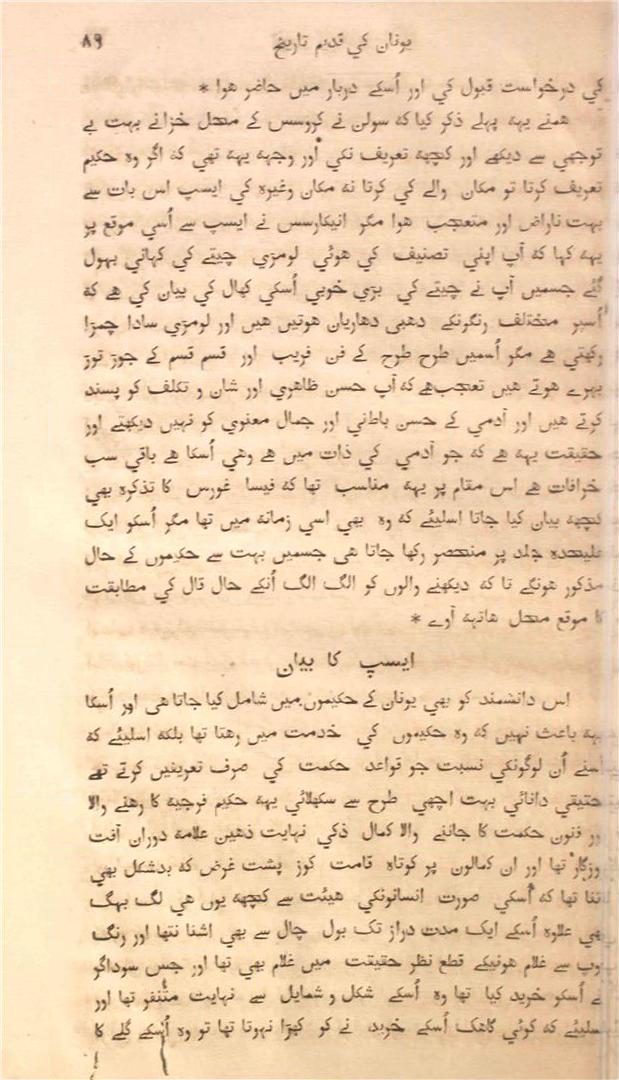 یونان کي قدیم تاریخ ۸۹
کي درخواست قبول کي اور اُسکے دربار میں حاضر هوا *
همنے یہہ پہلے ذکر کیا کہ سولن نے کروسس کے محل خزانے بہت بے
توجهي سے دیکھے اور کچھہ تعریف نکي اور وجہہ یہہ تهي کہ اگر وہ حکیم
تعریف کرتا تو مکان والے کي کرتا نہ مکان وغیرہ کي ایسپ اس بات سے
بہت ناراض اور متعجب هوا مگر انیکارسس نے ایسپ سے اُسي موقع پر
یہہ کہا کہ آپ اپني تصنیف کي هوئي لومڑي چیتے کي کہاني بهول
گئے جسمیں آپ نے چیتے کي بڑي خوبي اُسکي کهال کي بیان کي هے کہ
اُسپر مختلف رنگونکے دهبي دهاریاں هوتیں هیں اور لومڑي سادا چمڑا
رکهتي هے مگر اُسمیں طرح طرح کے فن فریب اور قسم قسم کے جوڑ توڑ
بہرے هوتے هیں تعجب هے کہ آپ حسن ظاهري اور شان و تکلف کو پسند
کرتے هیں اور آدمي کے حسن باطني اور جمال معنوي کو نہیں دیکهتے اور
حقیقت یہہ هے کہ جو آدمي کي ذات میں هے وهي اُسکا هے باقي سب
خرافات هے اس مقام پر یہہ مناسب تها کہ فیسا غورس کا تذکرہ بهي
کچھہ بیان کیا جاتا اسلیئے کہ وہ بهي اسي زمانہ میں تها مگر اُسکو ایک
علیحدہ جلد پر منحصر رکها جاتا هی جسمیں بہت سے حکیموں کے حال
مذکور هونگے تا کہ دیکهنے والوں کو الگ الگ اُنکے حال قال کي مطابقت
کا موقع محل هاتہہ آوے *
ایسپ کا بیان
اس دانشمند کو بهي یونان کے حکیموں میں شامل کیا جاتا هی اور اُسکا
یہہ باعث نہیں کہ وہ حکیموں کي خدمت میں رهتا تها بلکہ اسلیئے کہ
اُسنے اُن لوگونکي نسبت جو قواعد حکمت کي صرف تعریفیں کرتے تهے
حقیقي دانائي بہت اچهي طرح سے سکهلائي یہہ حکیم فرجیہ کا رهنے والا
اور فنون حکمت کا جاننے والا کمال ذکي نہایت ذهین علامہ دوران آفت
روزگار تها اور ان کمالوں پر کوتاہ قامت کوز پشت غرض کہ بدشکل بهي
اتنا تها کہ اُسکي صورت انسانونکي هیئت سے کچھہ یوں هي لگ بهگ
تهي علاوہ اُسکے ایک مدت دراز تک بول چال سے بهي اشنا نتها اور رنگ
روپ سے غلام هونیکے قطع نظر حقیقت میں غلام بهي تها اور جس سوداگر
نے اُسکو خرید کیا تها وہ اُسکے شکل و شمایل سے نہایت متنفر تها اور
اسلیئے کہ کوئي گاهک اُسکے خرید نے کو کهڑا نہوتا تها تو وہ اُسکے گلے کا